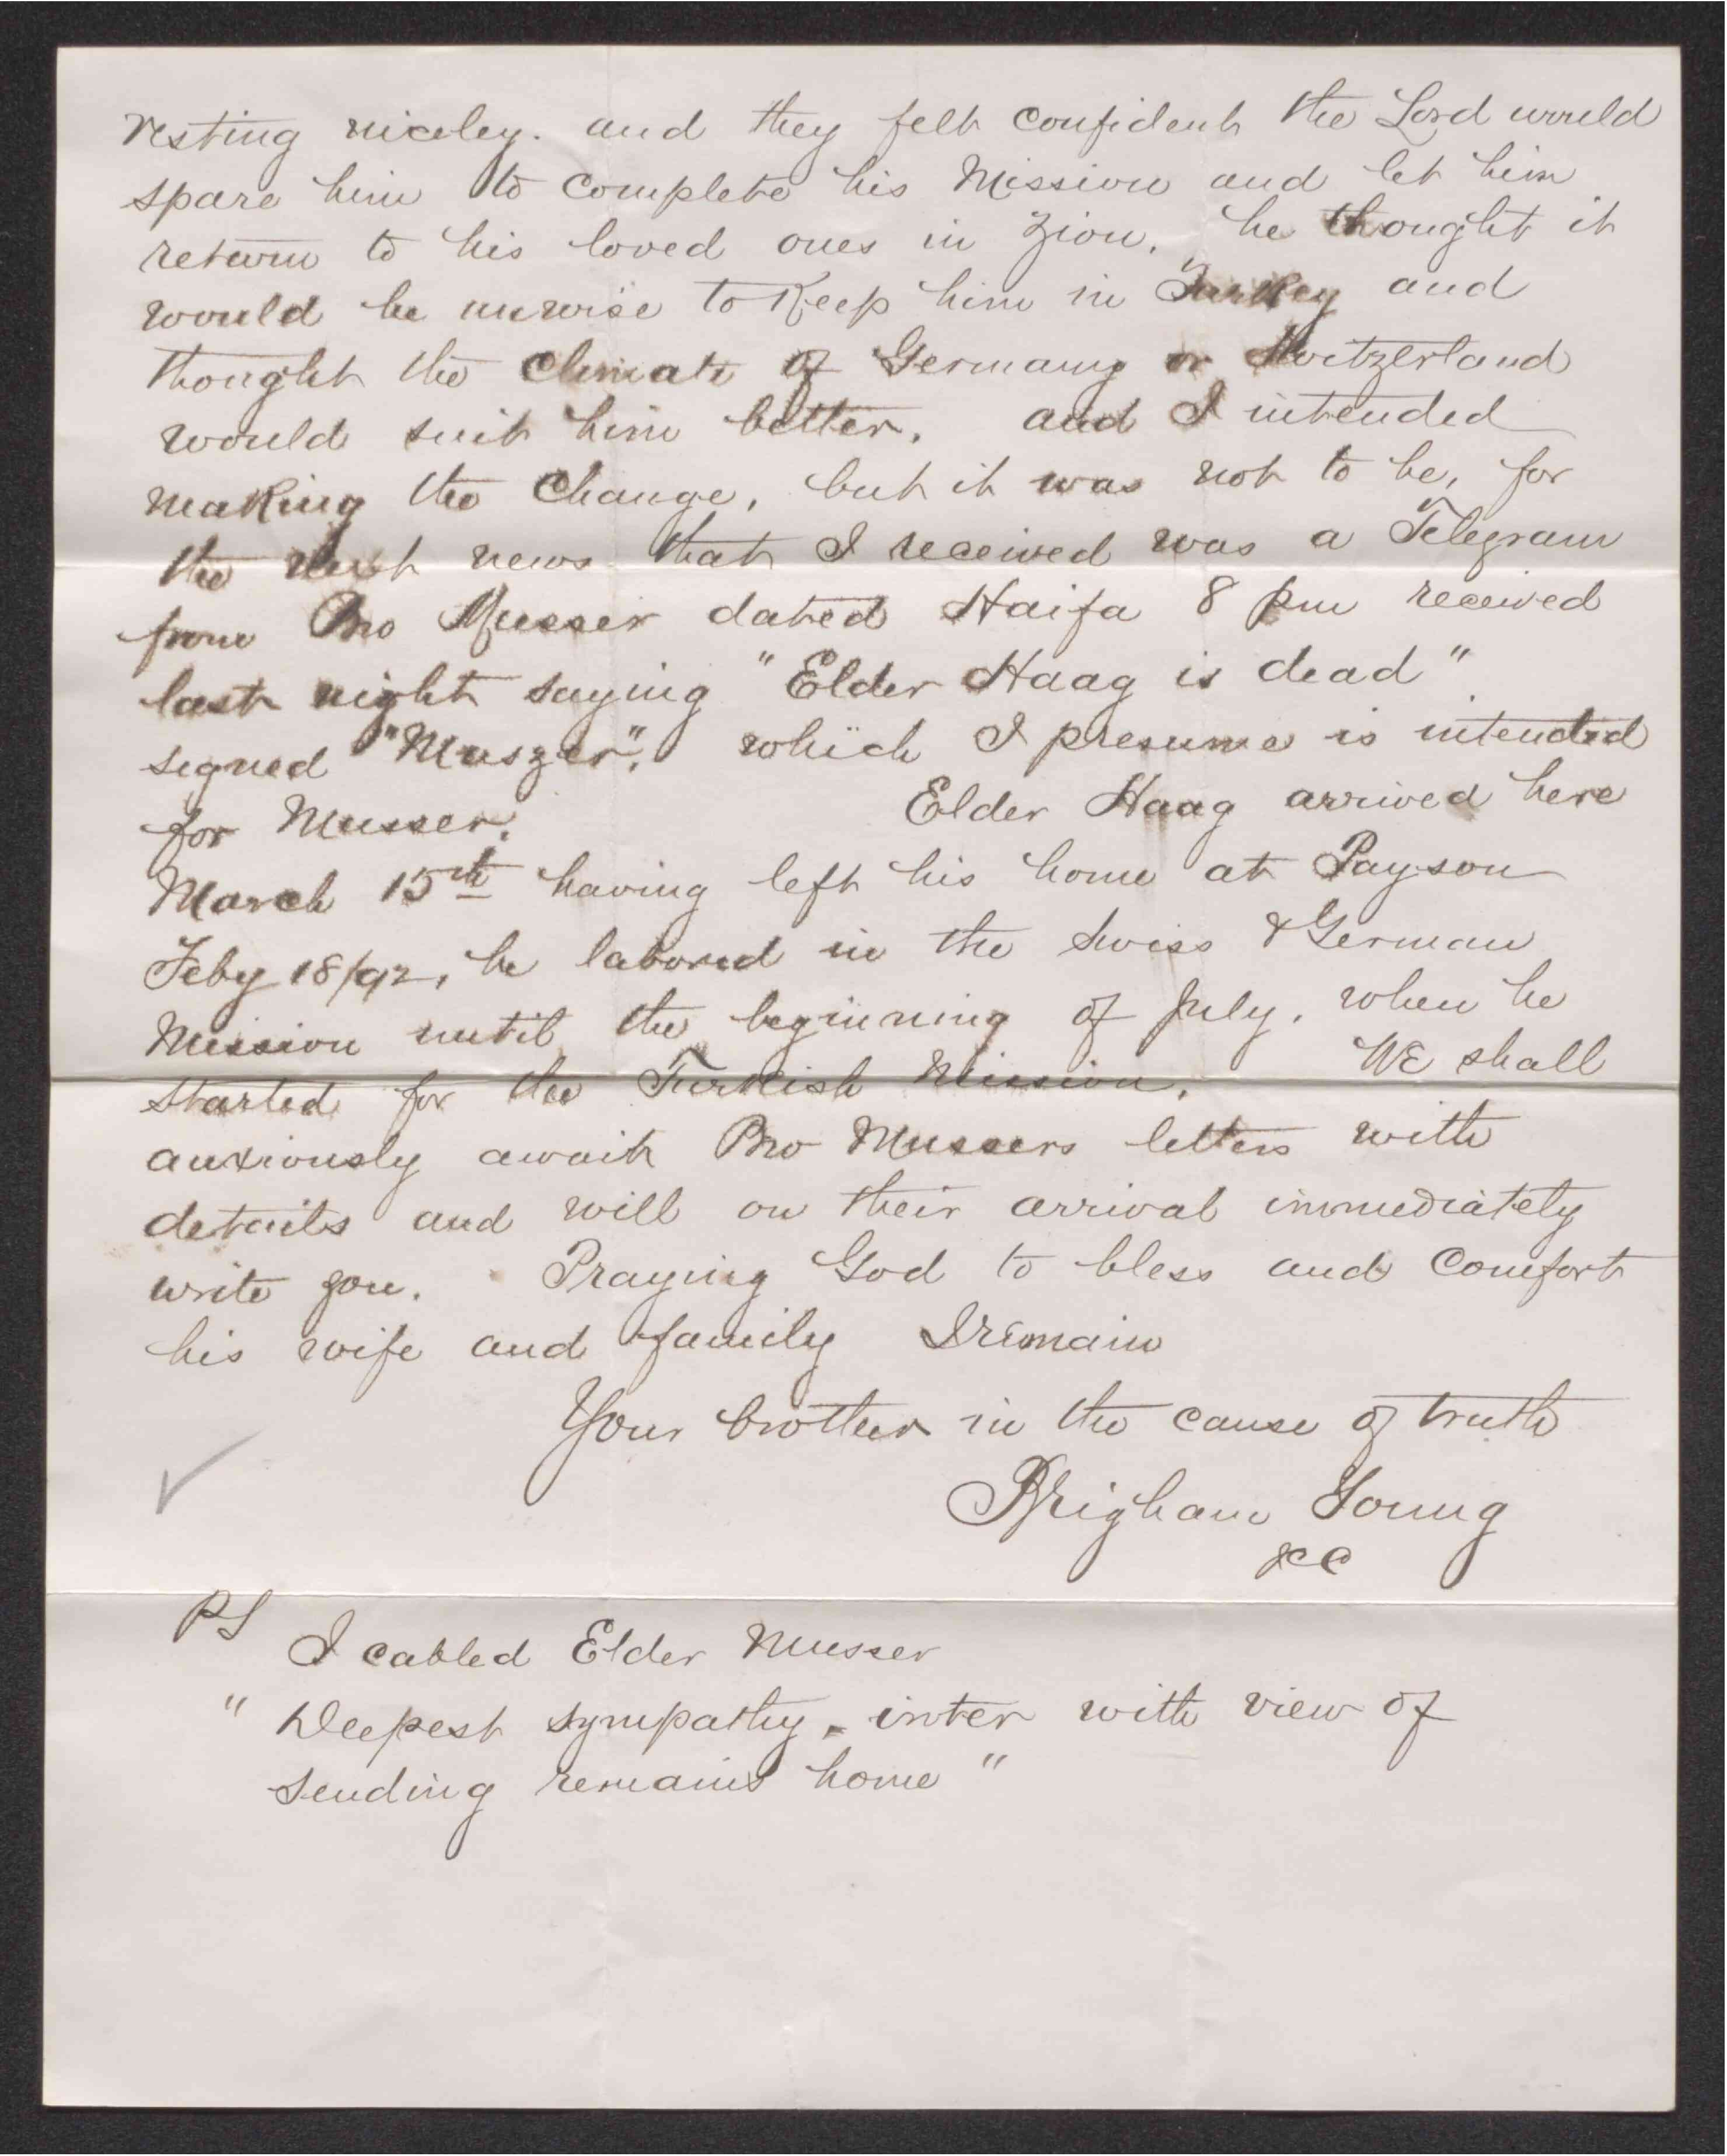 resting niceley. and they felt confident the Lord would
spare him to complete his Mission and let him
return to his loved ones in Zion. he thought it
would be unwise to Keep him in Turkey and
thought the Climate of Germany or Switzerland
would suit him better. and I intended
making the Change, but it was not to be, for
the next news that I received was a Telegram
from Bro Musser dated Haifa 8 pm received
last night saying "Elder Haag is dead"
signed "Muszer", which I presume is intended
for Musser. Elder Haag arrived here
March 15th having left his home at Payson
Feby 18/92, he labored in the Swiss & German
Mission until the beginning of July, when he
started for the Turkish Mission. We shall
anxiously await Bro Mussers letters with
details and will on their arrival immediately
write you. Praying God to bless and Comfort
his wife and family I remain
Your brother in the cause of truth
Brigham Young
PS
I cabled Elder Musser
"Deepest sympathy, inter with view of
sending remains home"